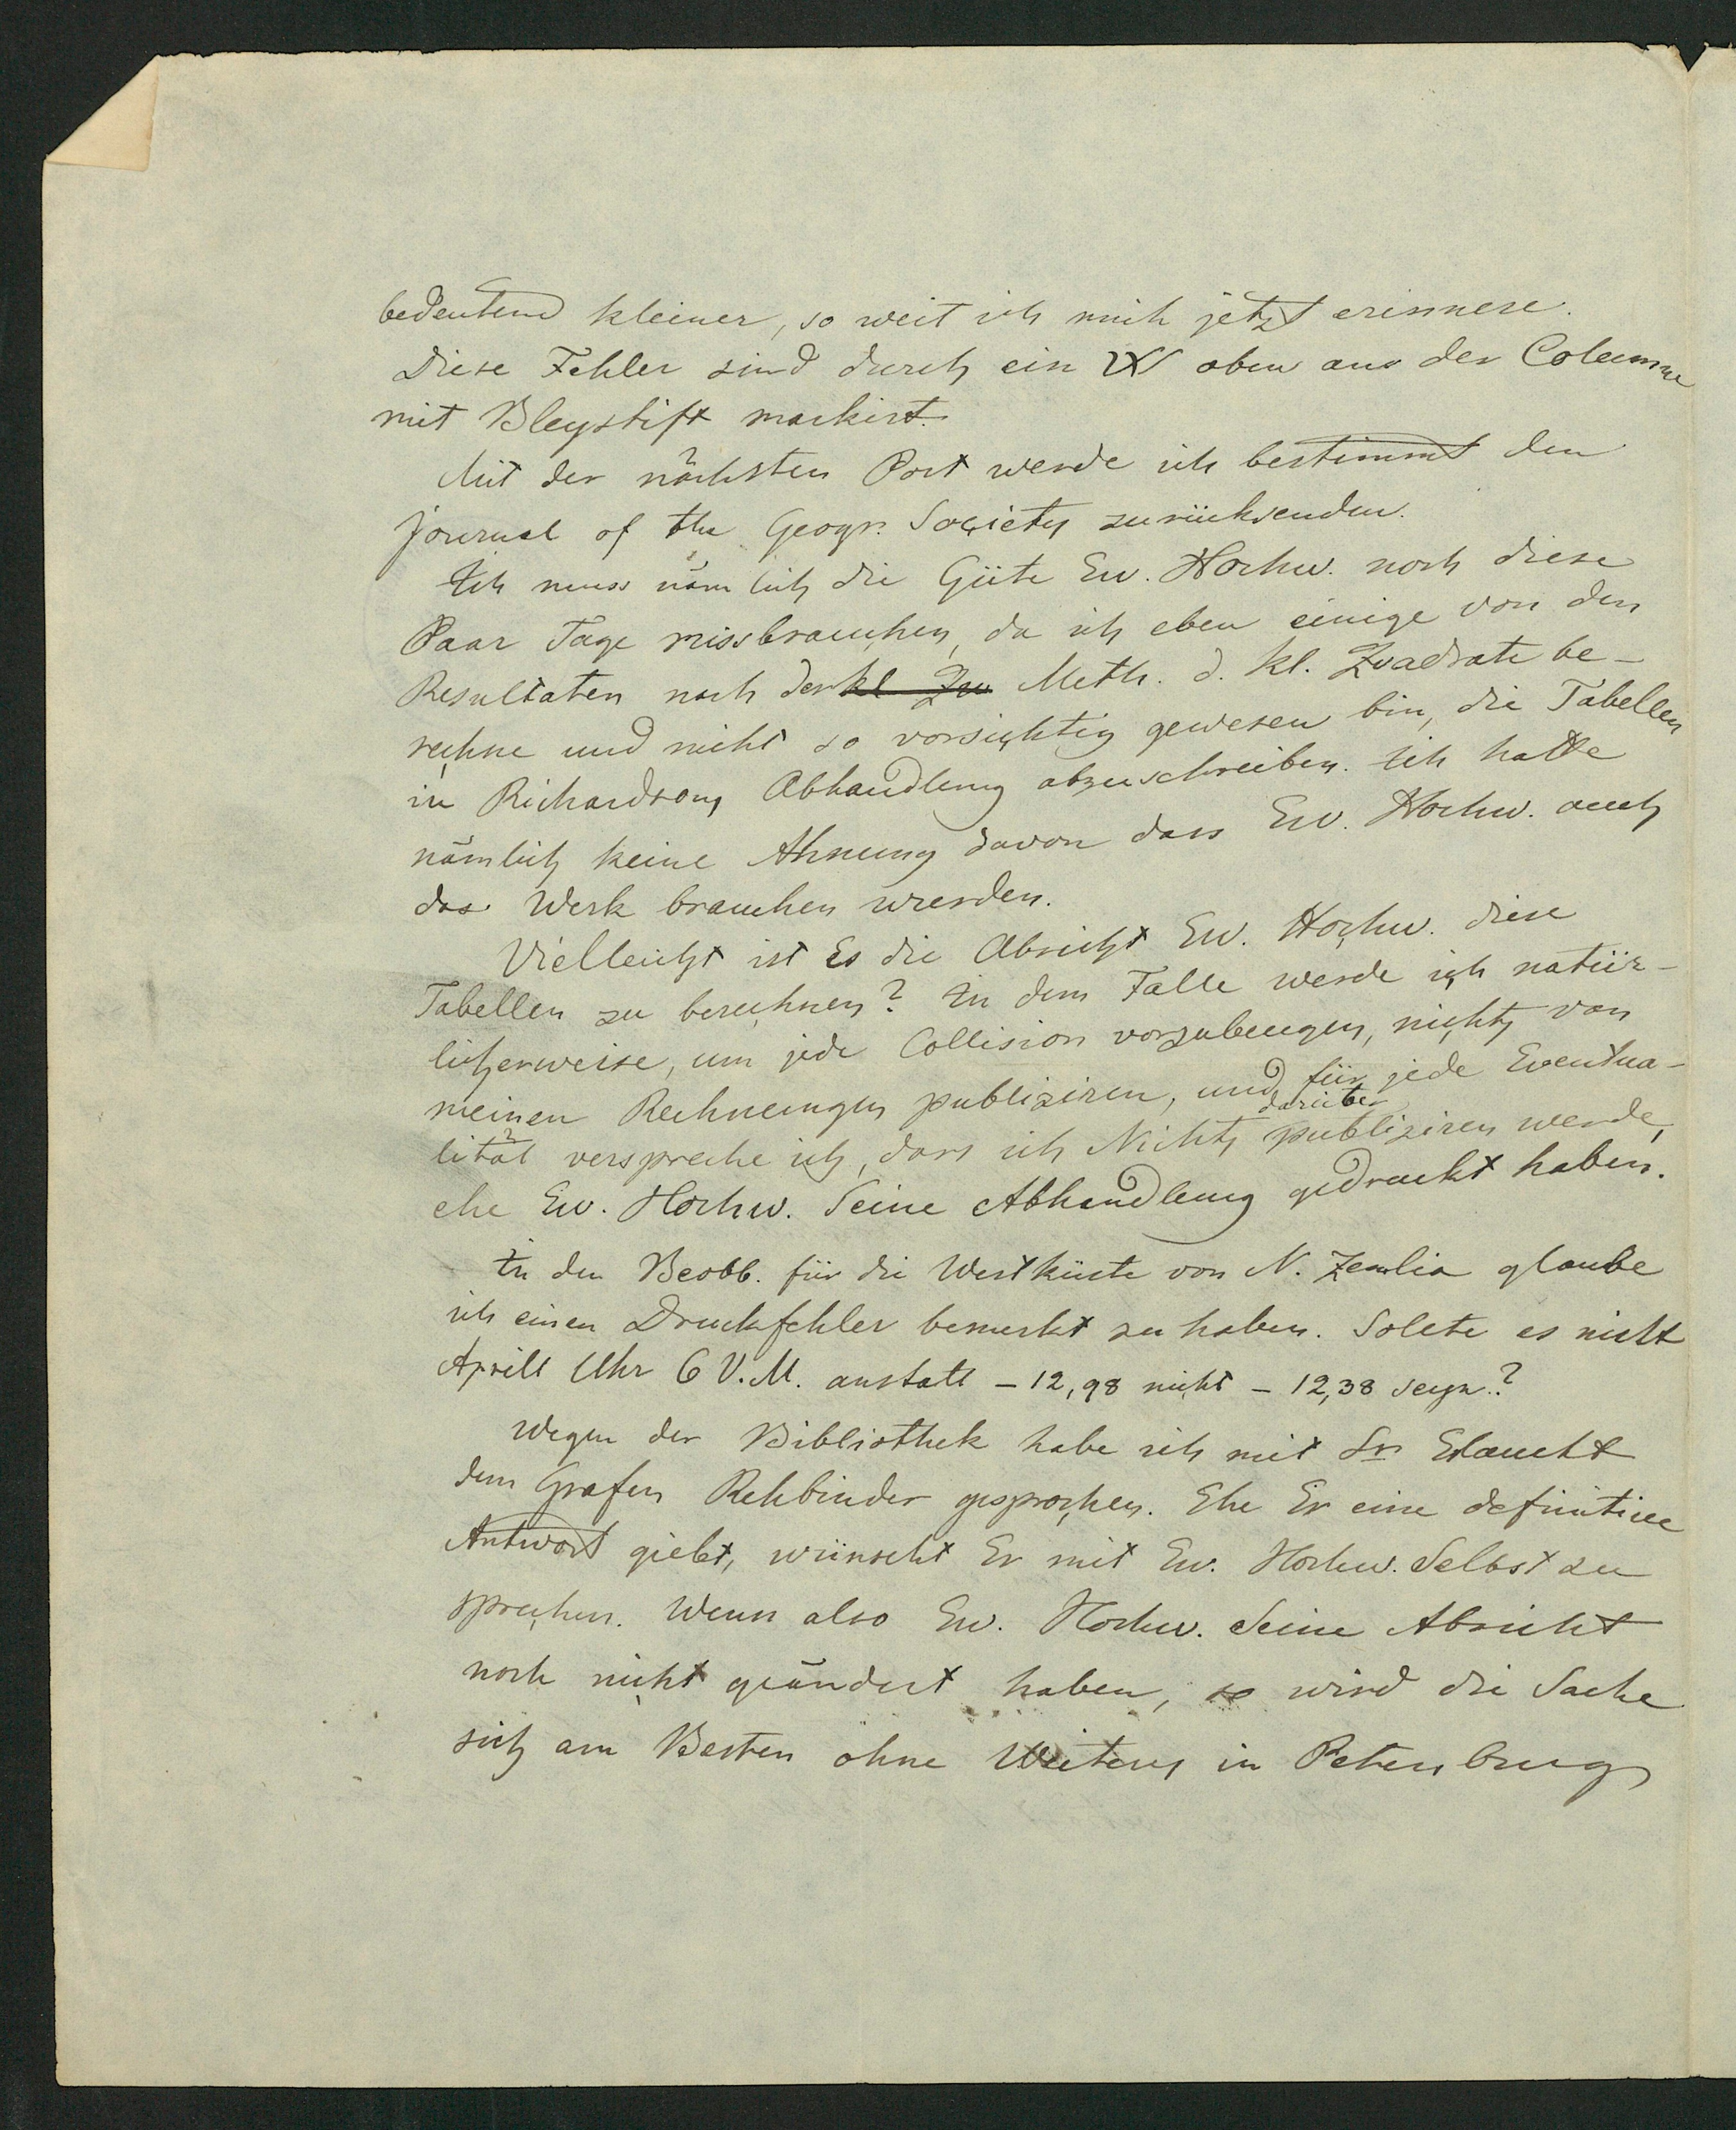 bedeutend kleiner, so weit ich mich jetzt erinnere.
Diese Fehler sind durch ein W oben aus der Columne
mit Bleystift markirt.
Mit der nächsten Post werde ich bestimmt den
Journal of the Geogr. Society zurücksenden.
Ich muss nämlich die Güte Ew. Hochw. noch diese
Paar Tage missbrauchen, da ich eben einige von den
Resultaten nach der kl Qu Meth. d. kl. Quadrate be-
rechne und nicht so vorsichtig gewesen bin, die Tabellen
in Richardsons Abhandlung abzuschreiben. Ich hatte
nämlich keine Ahnung davon dass Ew. Hochw. auch
das Werk brauchen werden.
Vielleicht ist Es die Absicht Ew. Hochw. diese
Tabellen zu berechnen? In dem Falle werde ich natür-
licherweise, um jede Collision vorzubeugen, nichts von
meinen Rechnungen publiziren, und für jede Eventua-
darüber
lität verspreche ich, dass ich Nichts publiziren werde,
ehe Ew. Hochw. Seine Abhandlung gedruckt haben.
In den Beobb. für die Westküste von N. Zemlia glaube
ich einen Druckfehler bemerkt zu haben. Sollte es nicht
Aprill Uhr 6 V.M. anstatt - 12,98 nicht - 12,38 seyn?
Wegen der Bibliothek habe ich mit Sr Erlaucht
dem Grafen Rehbinder gesprochen. Ehe Er eine definitive
Antwort giebt, wünscht Er mit Ew. Hochw. Selbst zu
sprechen. Wenn also Ew. Hochw. Seine Absicht
noch nicht geändert haben, so wird die Sache
sich am Besten ohne Weiteres in Petersburg